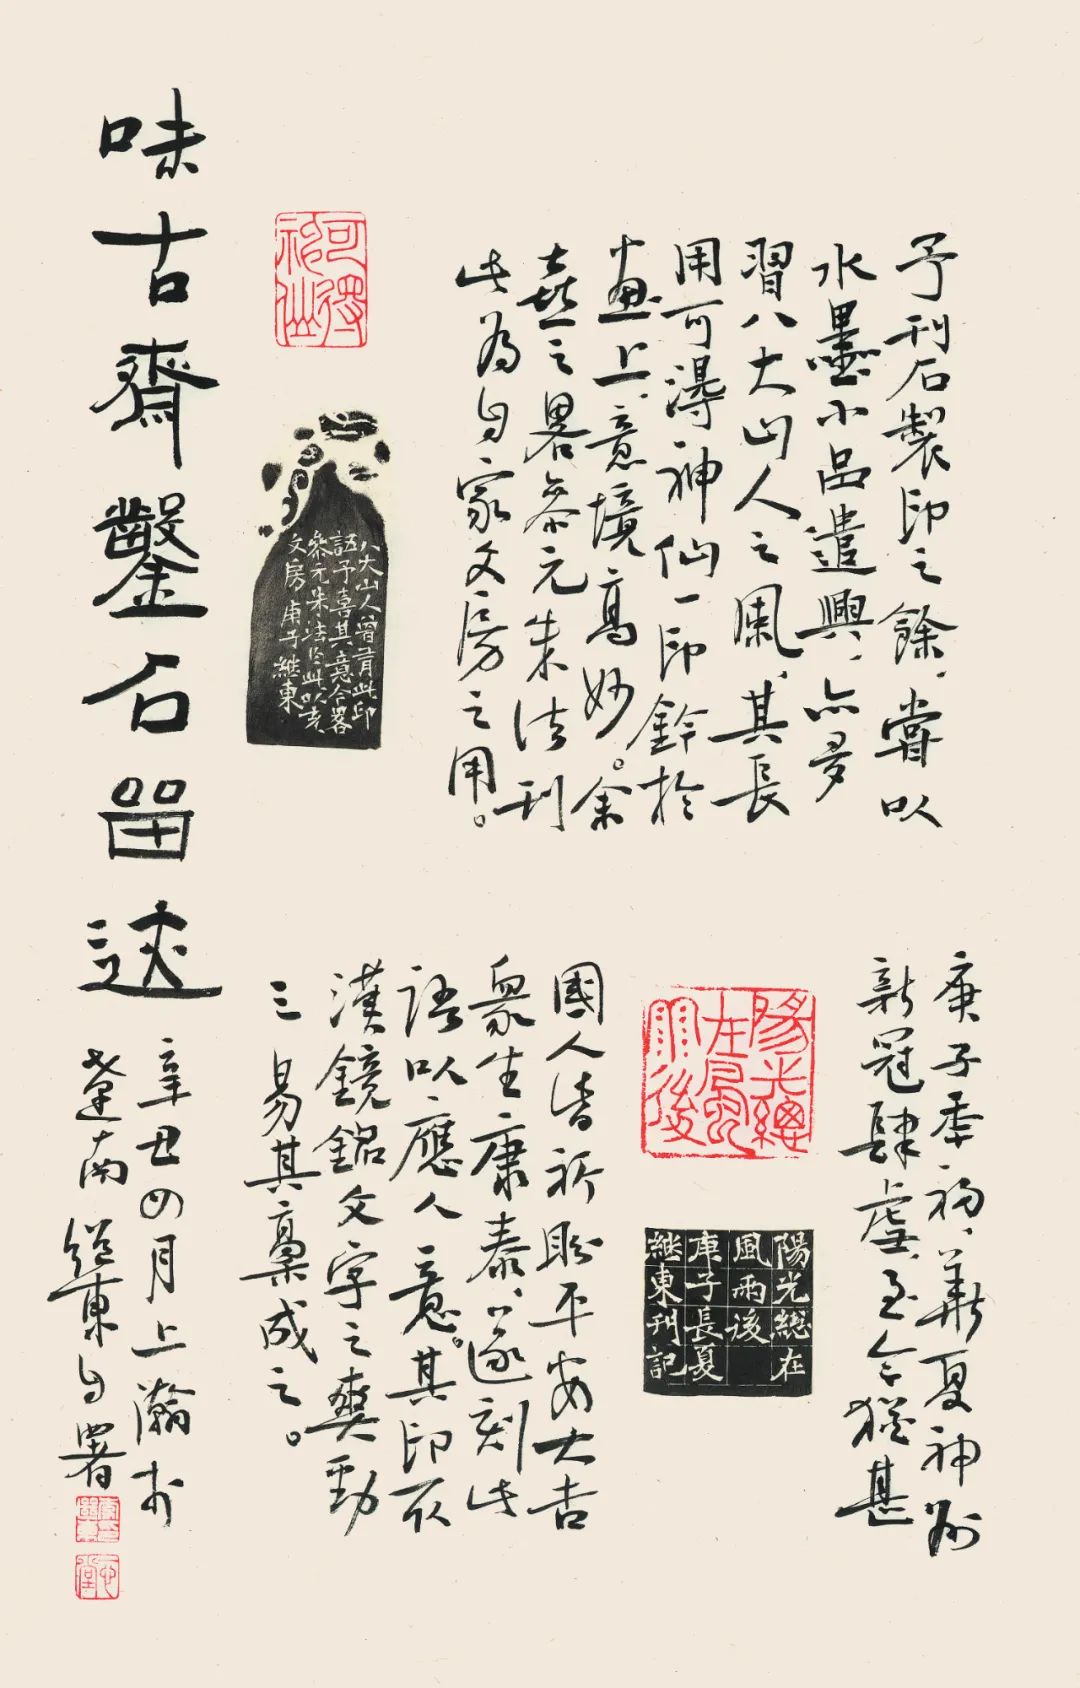 予刊石製印之餘，嘗以
水墨小品遣興，亦多
習八大山人之風，其長
用可得神仙一印鈐於
畫上，意境高妙。余
喜之畧參元朱法刊
此為自家文房之用。
可得神仙
八大山人曾有此印
語予喜其意今畧
參元朱法作此以充
文房庚子繼東
庚子季初，華夏神州
新冠肆虐，至今猶甚
陽光總在風雨後
陽光總在
風雨後
庚子長夏
継東刊記
國人皆祈盼平安大吉
衆生康泰，遂刻此
語以應人意。其印取
漢鏡銘文字之爽勁
三易其稾成之。
味古齋鑿石留迹
辛丑四月上瀚於
遼南継東自署